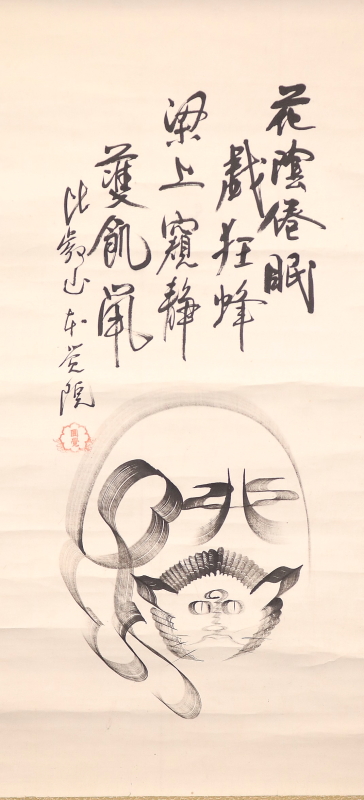 花陰倦眠
戯狂蜂
梁上窺静
獲飢鼠
比叡山本覚院